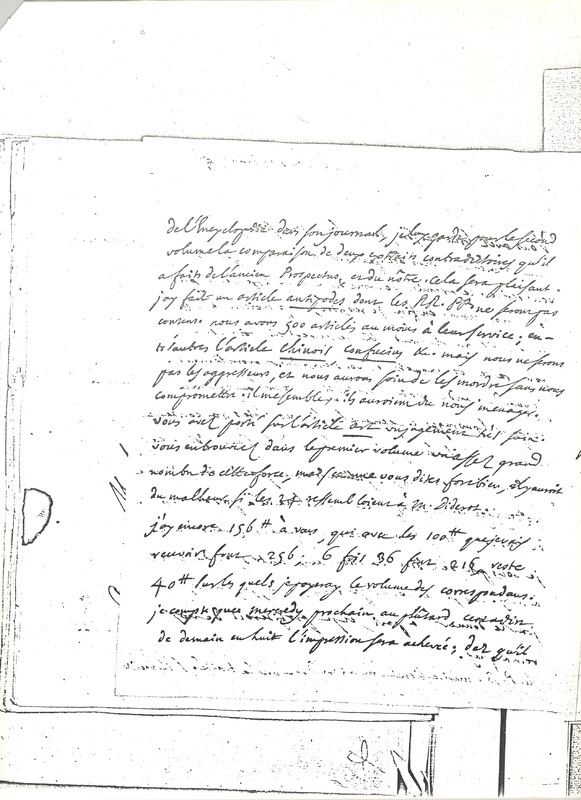 de l'Encyclopedie dans son journal, je luy garde pour le second
volume la comparaison de deux extraits contradictoires qu'il
a faits de l'ancien Prospectus, et du nôtre. cela sera plaisant.
j'ay fait un article antipodes dont les RR. PP. ne seront pas
contens. nous avons 500 articles au moins à leur service; en-
tr'autres l'article chinois confucius &c. mais nous ne serons
pas les aggresseurs, et nous aurons soin de les mordre sans nous
compromettre. il me semble qu'ils auroient dû nous menager.
vous avez porté sur l'article art un jugement très sain.
vous en trouverez dans le premier volume un assez grand
nombre de cette force, mais comme vous dites fort bien, il y auroit
du malheur si les 24 ressembloient à M. Diderot.
j'ay encore 156 ₶ à vous, qui avec les 100 ₶ que j'avois
recevoir font 256. 6 fois 36 font 216 reste
40 ₶ sur lesquels je payeray le volume des correspondans.
je compte que mercredy prochain au plûtard c'est à dire
de demain en huit l'impression sera achevée; dez qu'il